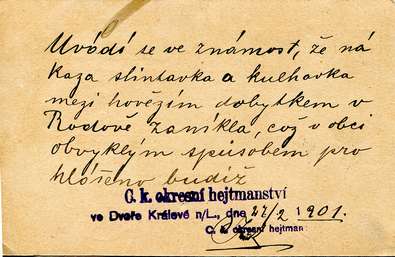 Uvádí se ve známost, že ná
kaza slintavka a kulhavka
mezi hovězím dobytkem v
Rodově zanikla, což v obci
obvyklým spůsobem pro
hlášeno budiž
C. k. okresní hejtmanství
ve Dvoře Králové n/L., dne 27/2 1901.
C. k. okresní hejtman: